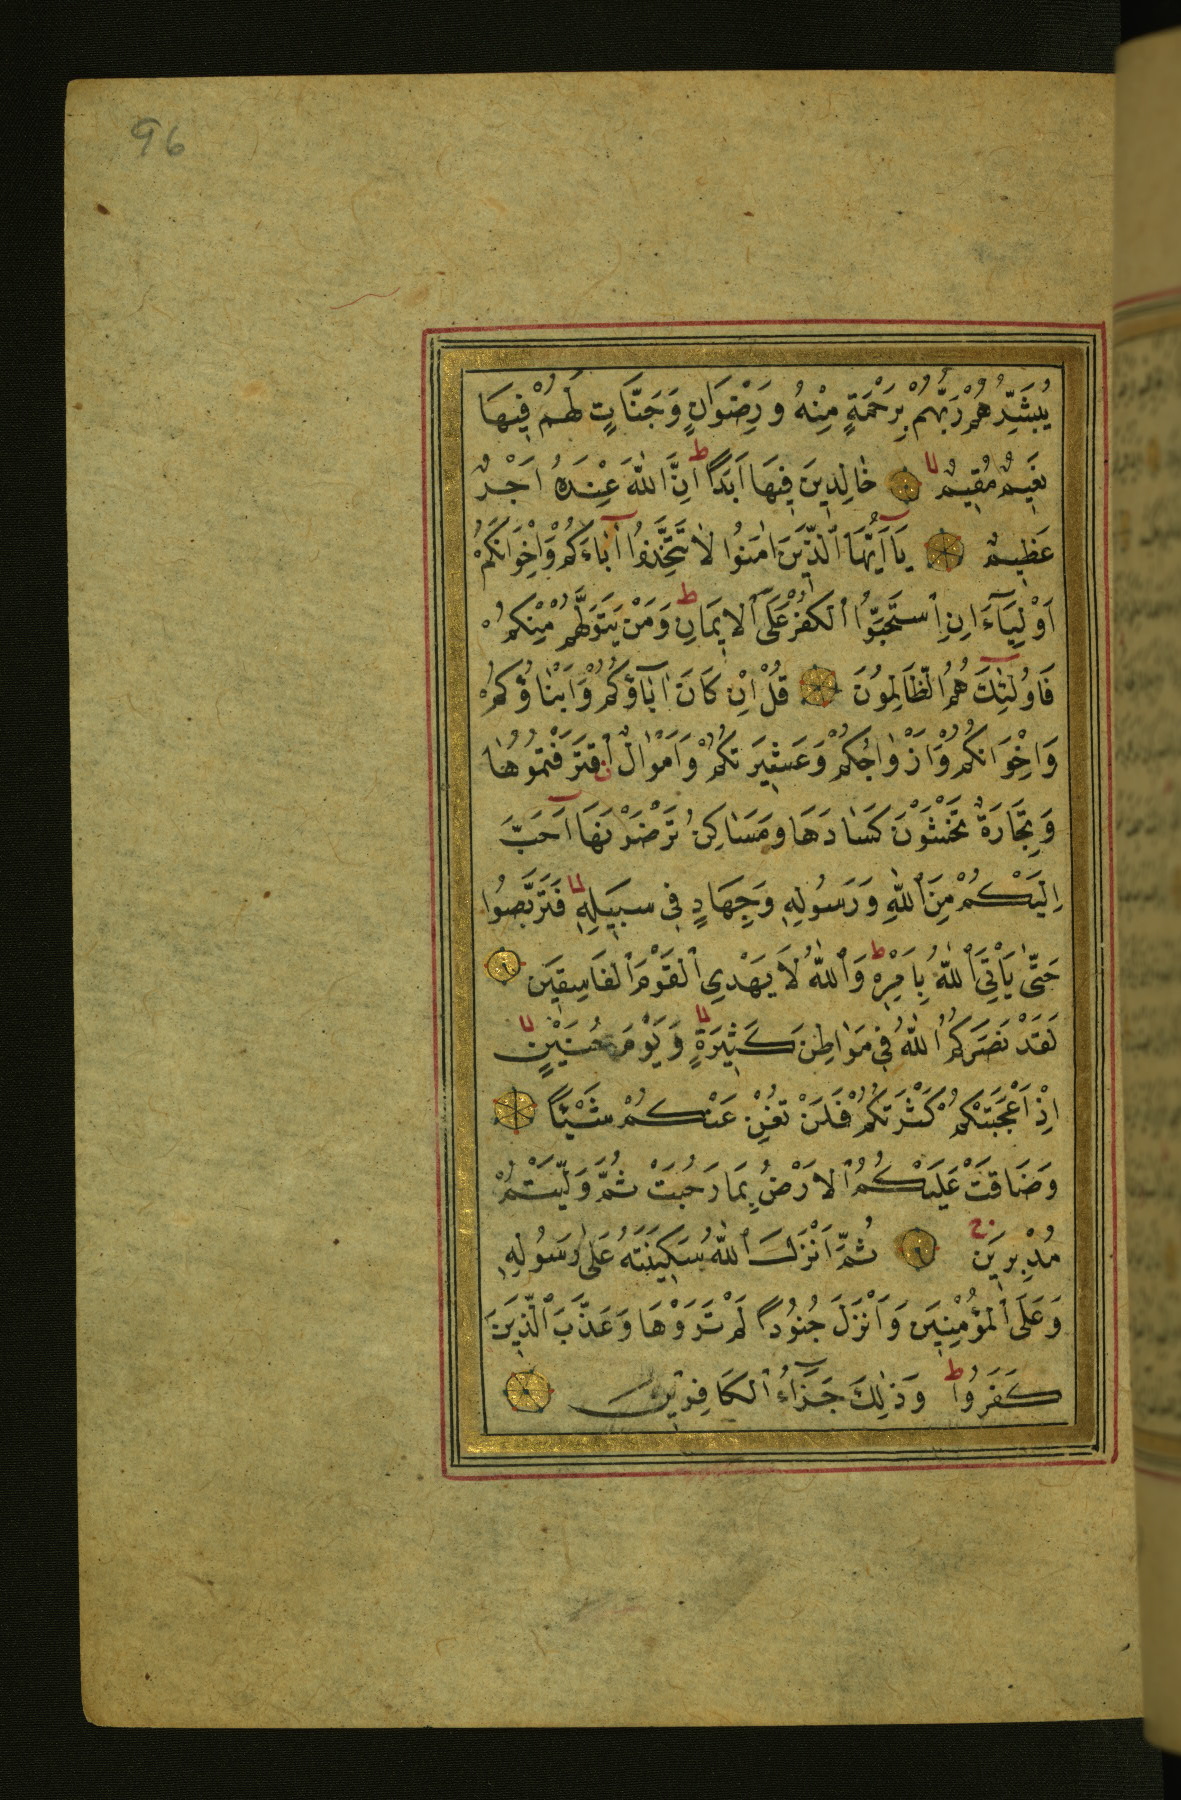 96
يُبَشِّرُهُمْ رَبُّهُمْ بِرَحْمَةٍ مِنْهُ وَرِضْوَانٍ وَجَنَّاتٍ لَهُمْ فِيهَا
نَعِيمٌ مُقِيمٌ لا خَالِدِينَ فِيهَا اَبَدًا ط اِنَّ اللّٰهَ عِنْدَهُ اَجْرٌ
عَظِيمٌ يَآ اَيُّهَا الَّذِينَ اٰمَنُوا لَا تَتَّخِذُوا اٰبَآءَكُمْ وَاِخْوَانَكُمْ
اَوْلِيَآءَ اِنِ اسْتَحَبُّوا الْكُفْرَ عَلَى الْاِيمَانِ ط وَمَنْ يَتَوَلَّهُمْ مِنْكُمْ
فَاُولٰٓئِكَ هُمُ الظَّالِمُونَ قُلْ اِنْ كَانَ اٰبَآؤُكُمْ وَاَبْنَاؤُكُمْ
وَاِخْوَانُكُمْ وَاَزْوَاجُكُمْ وَعَشِيرَتُكُمْ وَاَمْوَالٌ اقْتَرَفْتُمُوهَا
وَتِجَارَةٌ تَخْشَوْنَ كَسَادَهَا وَمَسَاكِنُ تَرْضَوْنَهَآ اَحَبَّ
اِلَيْكُمْ مِنَ اللّٰهِ وَرَسُولِهِ وَجِهَادٍ فِي سَبِيلِهِ لا فَتَرَبَّصُوا
حَتّٰى يَأْتِيَ اللّٰهُ بِاَمْرِهِ ط وَاللّٰهُ لَا يَهْدِي الْقَوْمَ الْفَاسِقِينَ
لَقَدْ نَصَرَكُمُ اللّٰهُ فِي مَوَاطِنَ كَثِيرَةٍ لا وَيَوْمَ حُنَيْنٍ لا
اِذْ اَعْجَبَتْكُمْ كَثْرَتُكُمْ فَلَنْ تُغْنِ عَنْكُمْ شَيْئًا
وَضَاقَتْ عَلَيْكُمُ الْاَرْضُ بِمَا رَحُبَتْ ثُمَّ وَلَّيْتُمْ
مُدْبِرِينَ ج ثُمَّ اَنْزَلَ اللّٰهُ سَكِينَتَهُ عَلٰى رَسُولِهِ
وَعَلَى الْمُؤْمِنِينَ وَاَنْزَلَ جُنُودًا لَمْ تَرَوْهَا وَعَذَّبَ الَّذِينَ
كَفَرُوا ط وَذٰلِكَ جَزَآءُ الْكَافِرِينَ